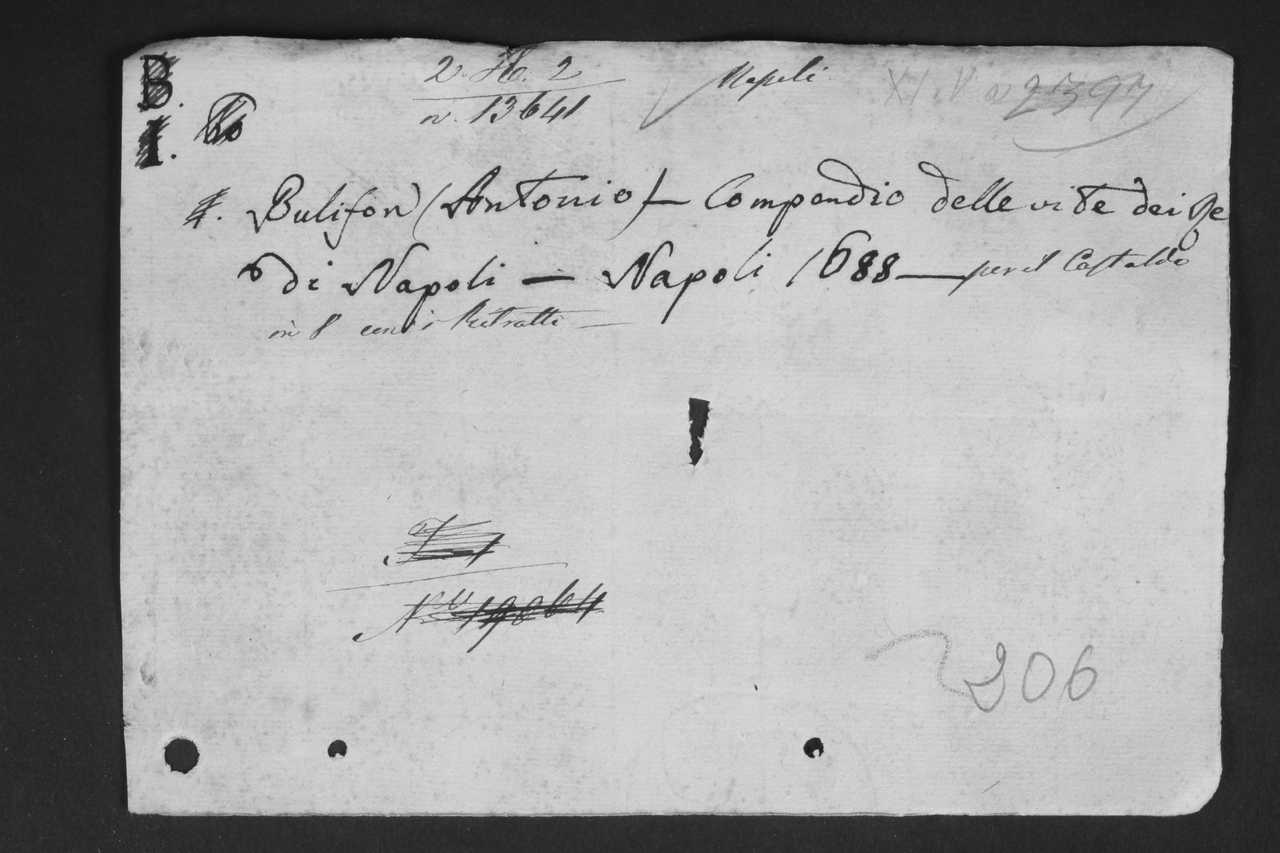 B.
I.
2. H. 2
n. 13641
Napoli
2397
Bulifon (Antonio) — Compendio delle vite dei Re
di Napoli — Napoli 1688 — per il Castaldo
in 8 con i Ritratti —
No 19064
206